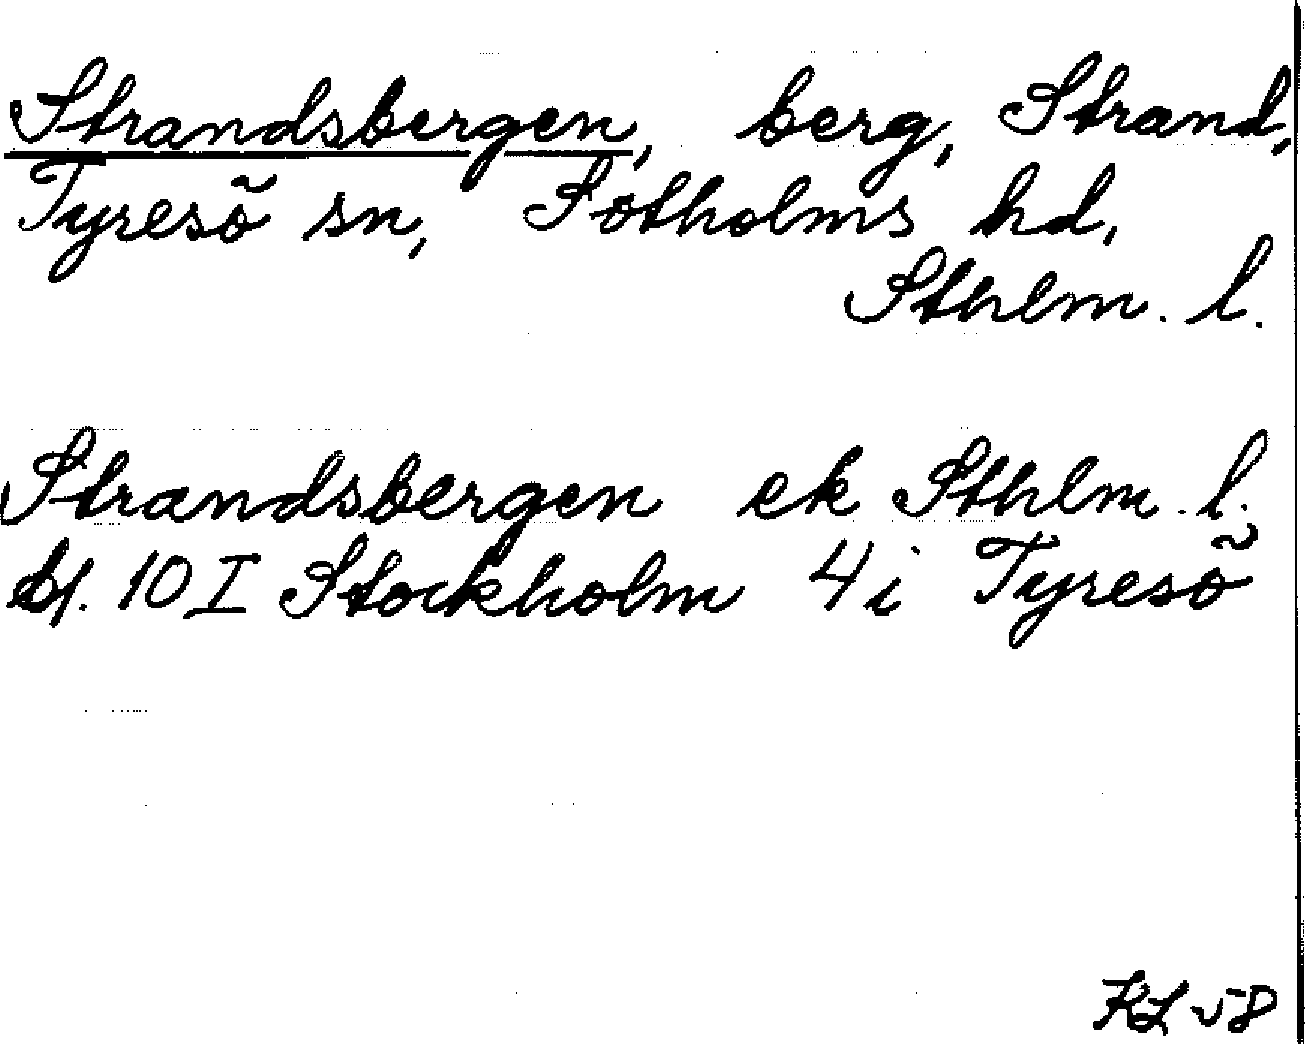 Strandsbergen, berg, Strand,
Tyresö sn, Sotholms hd,
Sthlm. l.
Strandsbergen ek Sthlm. l.
bl. 10 I Stockholm 4 i Tyresö
KL 58